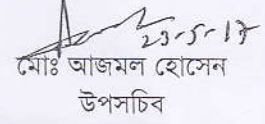 23-5-17
মোঃ আজমল হোসেন
উপসচিব